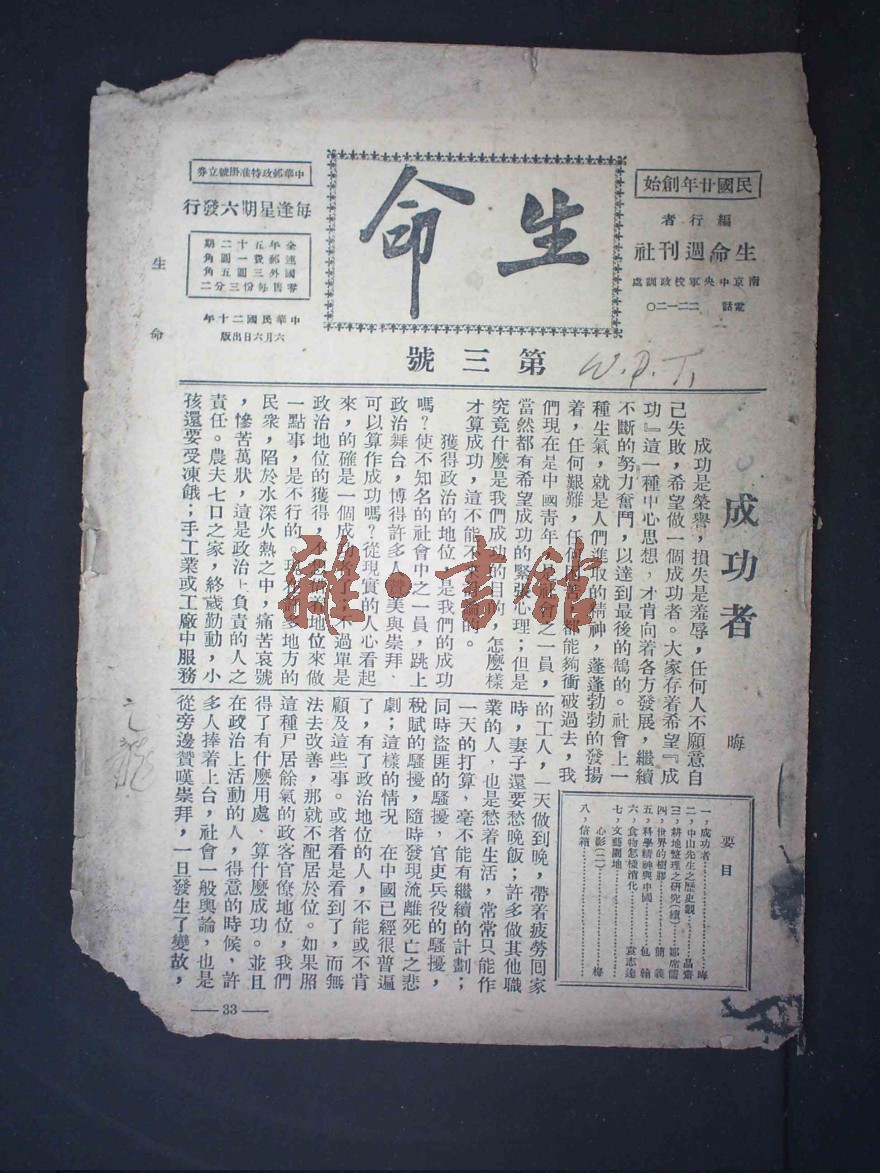 民國廿年創始
編行者
生命週刊社
南京中央軍校政訓處
電話 二二一二〇
生命
中華郵政特准掛號立券
每逢星期六發行
全年五十二期
連郵費一圓角
國外三圓五角
零售每份三分二
中華民國二十年
六月六日出版
第三號
W.P.T.
生命
成功者
晦
成功是榮譽，損失是羞辱，任何人不願意自
己失敗，希望做一個成功者。大家存着希望『成
功』這一種中心思想，才肯向着各方發展，繼續
不斷的努力奮鬥，以達到最後的鵠的。社會上一
種生氣，就是人們進取的精神，蓬蓬勃勃的發揚
着，任何艱難，任何困苦，都能夠衝破過去，我
們現在是中國青年 社會之一員，
當然都有希望成功的緊張心理；但是
究竟什麼是我們成功的目的，怎麼樣
才算成功，這不能不 的。
獲得政治的地位 是我們的成功
嗎？使不知名的社會中之一員，跳上
政治舞台，博得許多人贊美與崇拜、
可以算作成功嗎？從現實的人心看起
來，的確是一個成功者了，不過單是
政治地位的獲得，不 着地位來做
一點事，是不行的。現在許多地方的
民衆，陷於水深火熱之中，痛苦哀號
，慘苦萬狀，這是政治上負責的人之
責任。農夫七口之家，終歲勤動，小
孩還要受凍餓；手工業或工廠中服務
的工人，一天做到晚，帶着疲勞回家
時，妻子還要愁晚飯；許多做其他職
業的人，也是愁着生活，常常只能作
一天的打算，毫不能有繼續的計劃；
同時盜匪的騷擾，官吏兵役的騷擾，
稅賦的騷擾，隨時發現流離死亡之悲
劇；這樣的情況 在中國已經很普遍
了，有了政治地位的人，不能或不肯
顧及這些事。或者看是看到了，而無
法去改善，那就不配居於位。如果照
這種尸居餘氣的政客官僚地位，我們
得了有什麼用處、算什麼成功。並且
在政治上活動的人，得意的時候，許
多人捧着上台，社會一般輿論，也是
從旁邊贊嘆崇拜，一旦發生了變故，
要目
一，成功者……晦
二，中山先生之歷史觀……晶齋
三，耕地整理之研究(續)……鄒席儒
四，世界的樹膠……簡義
五，科學精神與中國……包翰
六，食物怎樣消化……袁志遠
七，文藝園地
心影(二)……梅
八，信箱
—33—
雜·書館